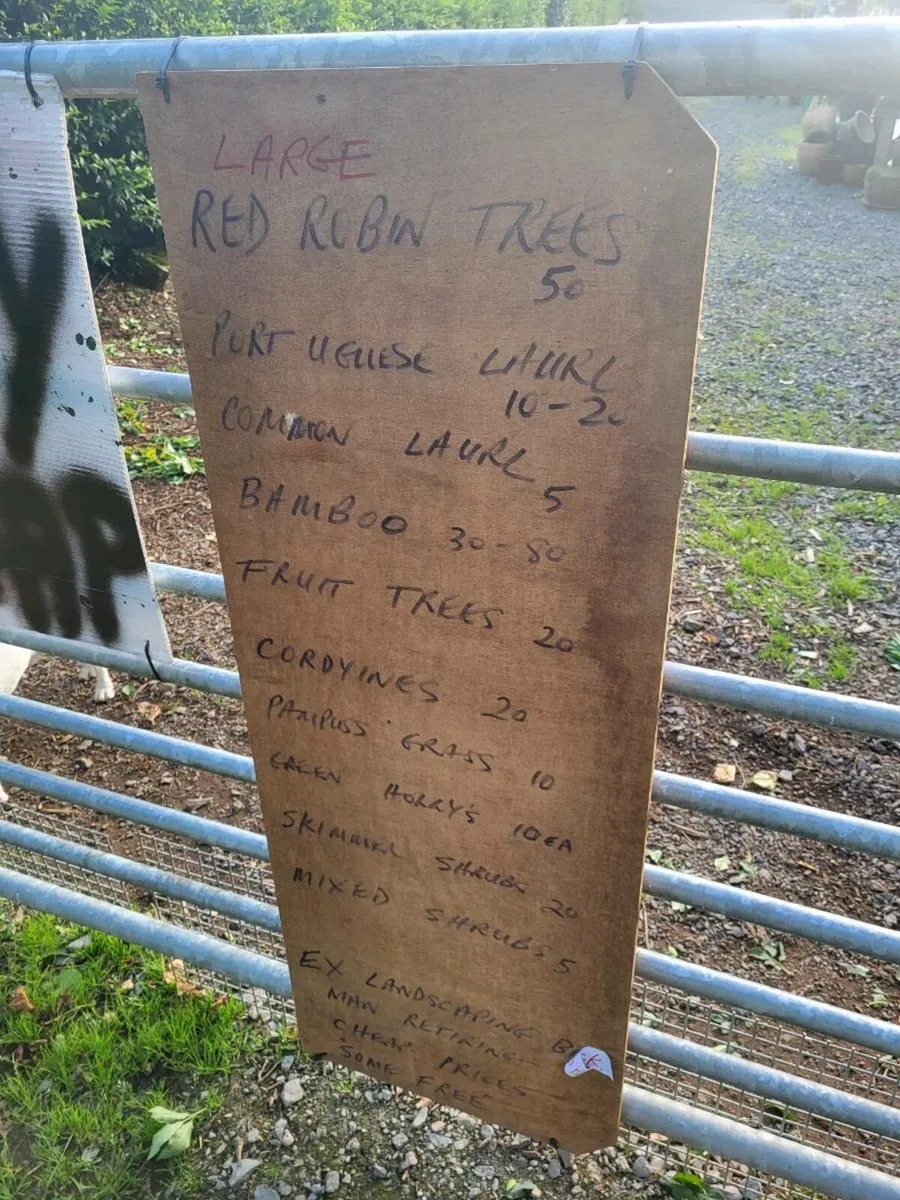 LARGE
RED ROBIN TREES
50
PORTUGUESE LAURL
10-20
COMMON LAURL
5
BAMBOO 30-80
FRUIT TREES 20
CORDYINES 20
PAMPUSS GRASS 10
GREEN HORRY'S 10EA
SKIMMER SHRUBS 20
MIXED SHRUBS 5
EX LANDSCAPING
MAN RETIRING
CHEAP PRICES
"SOME FREE"
Y